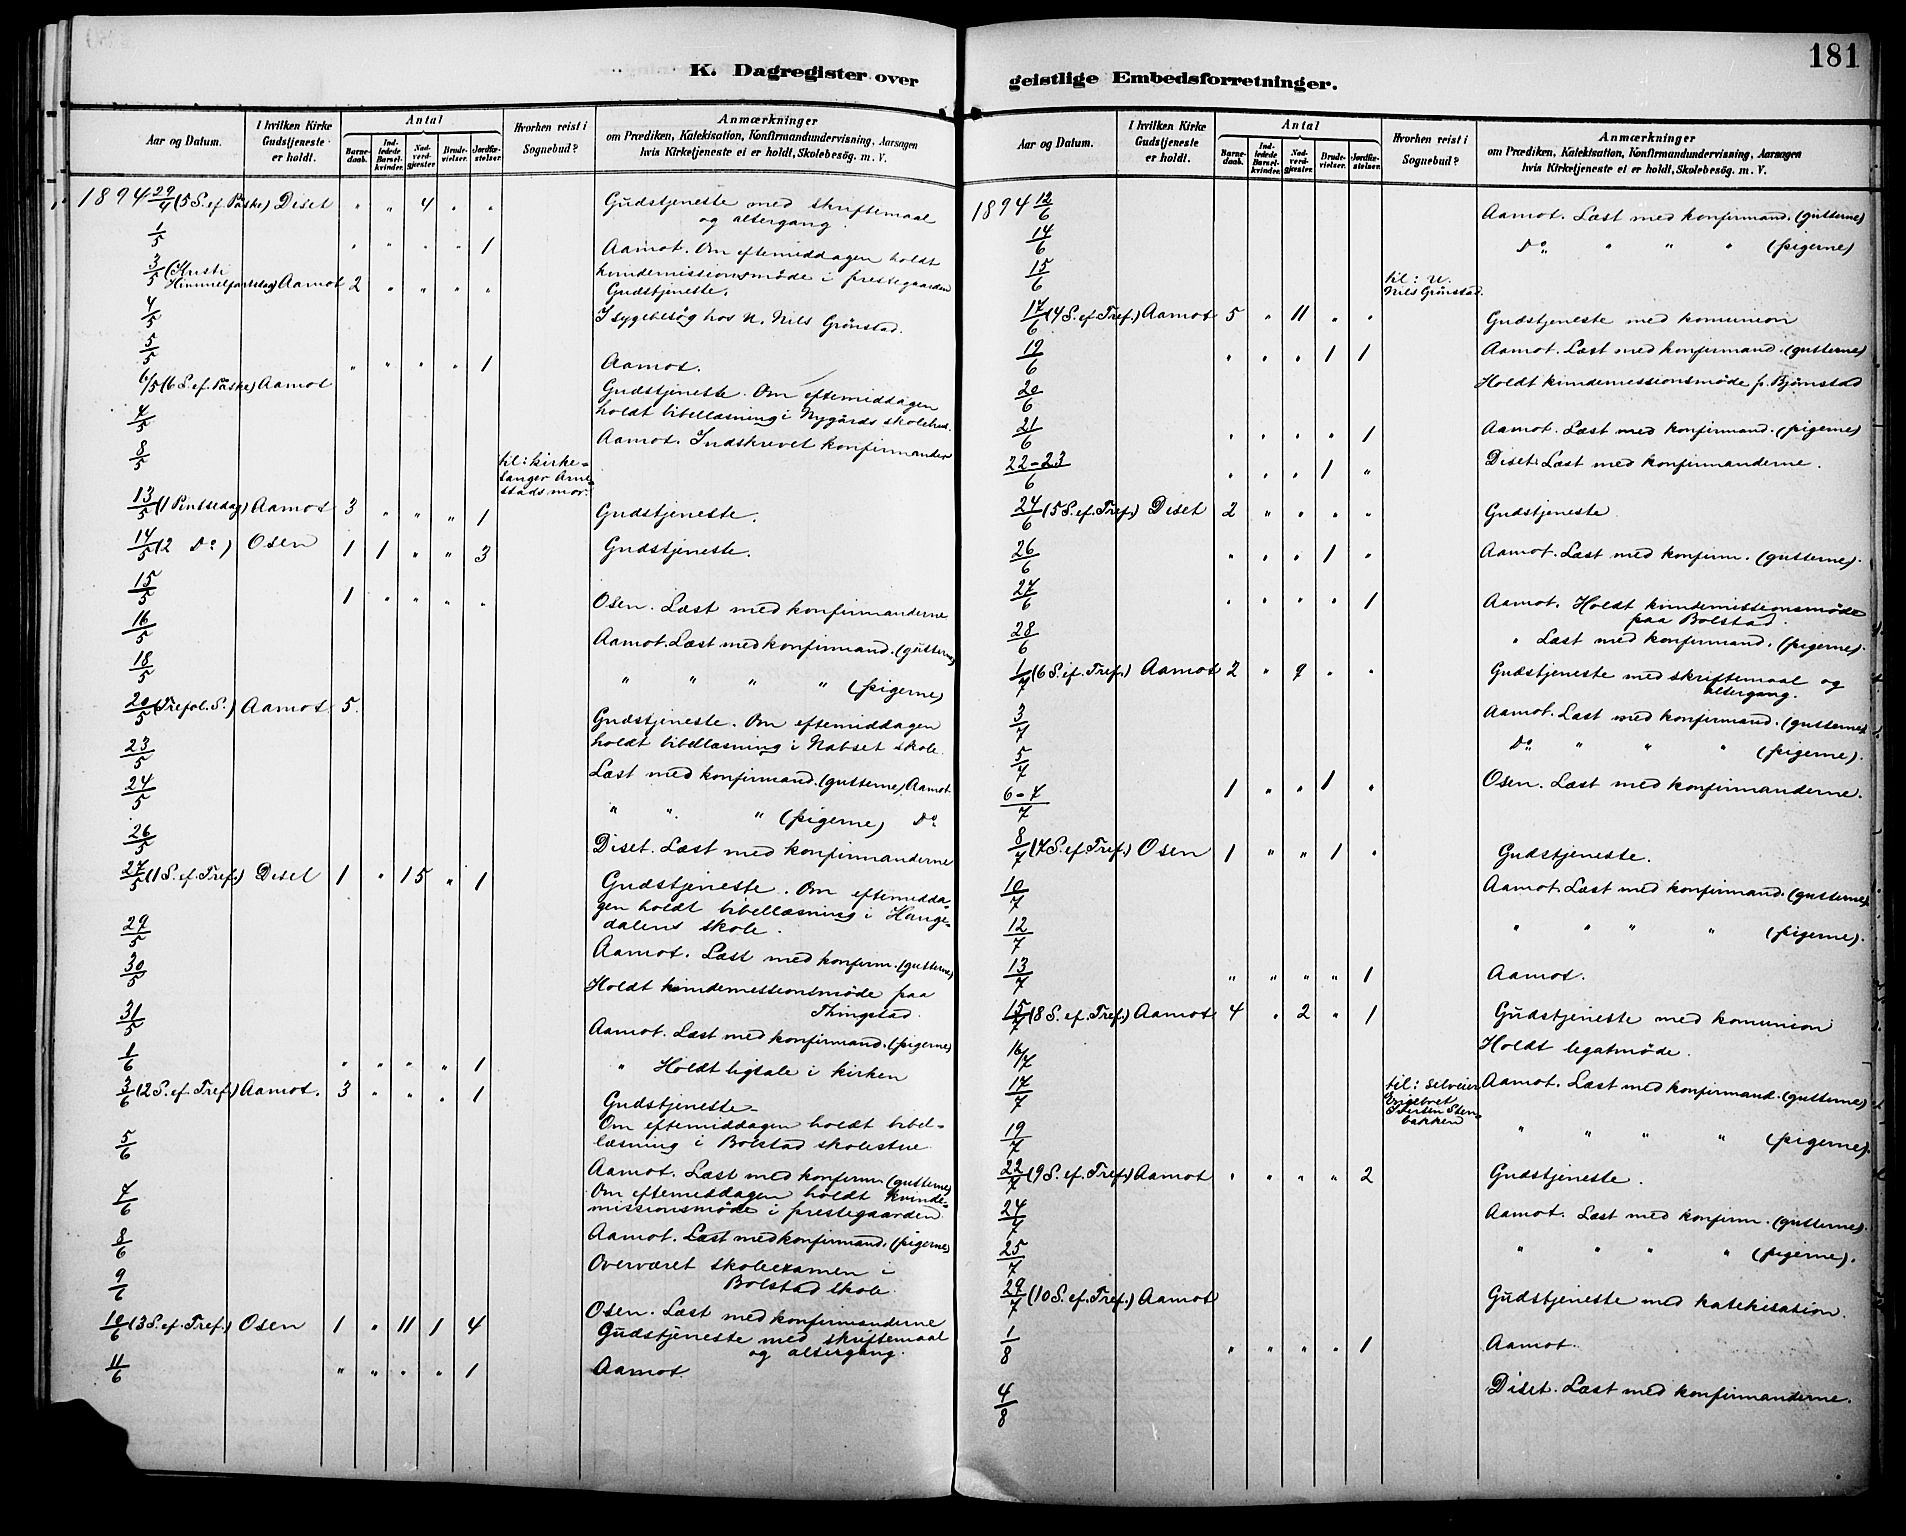 181
K. Dagregister over
geistlige Embedsforretninger.
Aar og Datum.
I hvilken Kirke Gudstjeneste er holdt.
Antal
Barnedaab.
Indledede Barselkvinder.
Nadverdgjester.
Brudevielser.
Jordfæstelser.
Hvorhen reist i Sognebud?
Anmærkninger
om Prædiken, Katekisation, Konfirmandundervisning, Aarsagen
hvis Kirketjeneste ei er holdt, Skolebesög. m. V.
1894 29/4 (5 S. ef. Påske) Diset " " 4 " " Gudstjeneste med skriftemaal
og altergang.
1/5 " " " " 1 Aamot. Om eftemiddagen holdt
kvindemissionsmöde i prestegaarden
3/5 (Kristi
Himmelfartsdag) Aamot 2 " " " " Gudstjeneste.
4/5 I sygebesög hos N. Nils Grönstad.
5/5 " " " " 1 Aamot.
6/5 (6 S. ef. Påske) Aamot Gudstjeneste. Om eftemiddagen
holdt bibellæsning i Nygårds skolehus.
7/5 Aamot. Indskrevet konfirmander
8/5 til: kirke-
sanger Arne-
stads mor.
13/5 (1 Pintsedag) Aamot 3 " " " 1 Gudstjeneste.
14/5 (2 do) Osen 1 1 " " 3 Gudstjeneste.
15/5 1 " " " " Osen. Læst med konfirmanderne
16/5 Aamot. Læst med konfirmand. (gutterne)
18/5 " " " " (pigerne)
20/5 (Trefol. S.) Aamot 5. Gudstjeneste. Om eftemiddagen
holdt bibellæsning i Nabset skole.
23/5 Læst med konfirmand. (gutterne) Aamot
24/5 " " " (pigerne) do
26/5 Diset. Læst med konfirmanderne
27/5 (1 S. ef. Tref.) Diset 1 " 15 " 1 Gudstjeneste. Om eftemidda-
gen holdt bibellæsning i Hauge-
dalens skole.
29/5 Aamot. Læst med konfirm. (gutterne)
30/5 Holdt kvindemissionsmöde paa
Thingstad.
31/5 Aamot. Læst med konfirmand. (pigerne)
1/6 " " " " 1 " Holdt ligtale i kirken
3/6 (2 S. ef. Tref.) Aamot. 3 " " " 1 Gudstjeneste.
Om eftemiddagen holdt bibel-
læsning i Bolstad skolestue.
5/6 Aamot. Læst med konfirm. (gutterne)
Om eftemiddagen holdt kvinde-
missionsmöde i prestegaarden.
7/6 Aamot. Læst med konfirmand. (pigerne)
8/6 Overværet skoleexamen i
Bolstad skole.
9/6 Osen. Læst med konfirmanderne
10/6 (3 S. ef. Tref.) Osen 1 " 11 1 4 Gudstjeneste med skriftemaal
og altergang.
11/6 " " " " 1 Aamot.
Aar og Datum.
I hvilken Kirke Gudstjeneste er holdt.
Antal
Barnedaab.
Indledede Barselkvinder.
Nadverdgjester.
Brudevielser.
Jordfæstelser.
Hvorhen reist i Sognebud?
Anmærkninger
om Prædiken, Katekisation, Konfirmandundervisning, Aarsagen
hvis Kirketjeneste ei er holdt, Skolebesög. m. V.
1894 12/6 Aamot. Læst med konfirmand. (gutterne)
14/6 do " " " (pigerne)
15/6 til: N.
Nils Grönstad.
17/6 (4 S. ef. Tref.) Aamot 5 " 11 " " Gudstjeneste med komunion
19/6 " " " 1 1 Aamot. Læst med konfirmand. (gutterne)
20/6 Holdt kvindemissionsmöde p. Bjørnstad
21/6 " " " " 1 Aamot. Læst med konfirmand. (pigerne)
22-23/6 " " " 1 " Diset. Læst med konfirmanderne.
24/6 (5 S. ef. Tref.) Diset 2 " " " " Gudstjeneste
26/6 " " " 1 " Aamot. Læst med konfirm. (gutterne).
27/6 " " " " 1 Aamot. Holdt kvindemissionsmöde
paa Bolstad.
28/6 " Læst med konfirmand. (pigerne).
1/7 (6 S. ef. Tref.) Aamot 2 " 9 " " Gudstjeneste med skriftemaal og
altergang.
3/7 Aamot. Læst med konfirmand. (gutterne)
5/7 do " " " (pigerne).
6-7/7 1 " " 1 " Osen. Læst med konfirmanderne.
8/7 (7 S. ef. Tref.) Osen 1 " " 1 " Gudstjeneste.
10/7 Aamot. Læst med konfirmand. (gutterne).
12/7 " " " " (pigerne).
13/7 " " " " 1 Aamot.
15/7 (8 S. ef. Tref.) Aamot 4 " 2 " 1 Gudstjeneste med komunion
16/7 Holdt legatmöde.
17/7 til: selveier
Engebret
Stenbakken Aamot. Læst med konfirmand. (gutterne)
19/7 " " " " (pigerne).
22/7 (9 S. ef. Tref.) Aamot " " " " 2 Gudstjeneste.
24/7 Aamot. Læst med konfirm. (gutterne).
25/7 " " " " (pigerne).
29/7 (10 S. ef. Tref.) Aamot Gudstjeneste med katekisation.
1/8 " " " " 1 Aamot.
4/8 Diset. Læst med konfirmanderne.